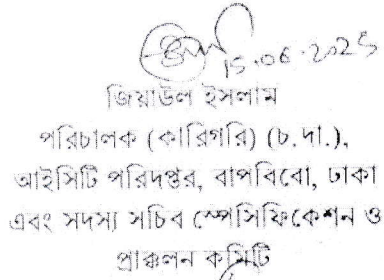 15.06.2025
জিয়াউল ইসলাম
পরিচালক (কারিগরি) (চ.দা.),
আইসিটি পরিদপ্তর, বাপবিবো, ঢাকা
এবং সদস্য সচিব স্পেসিফিকেশন ও
প্রাক্কলন কমিটি